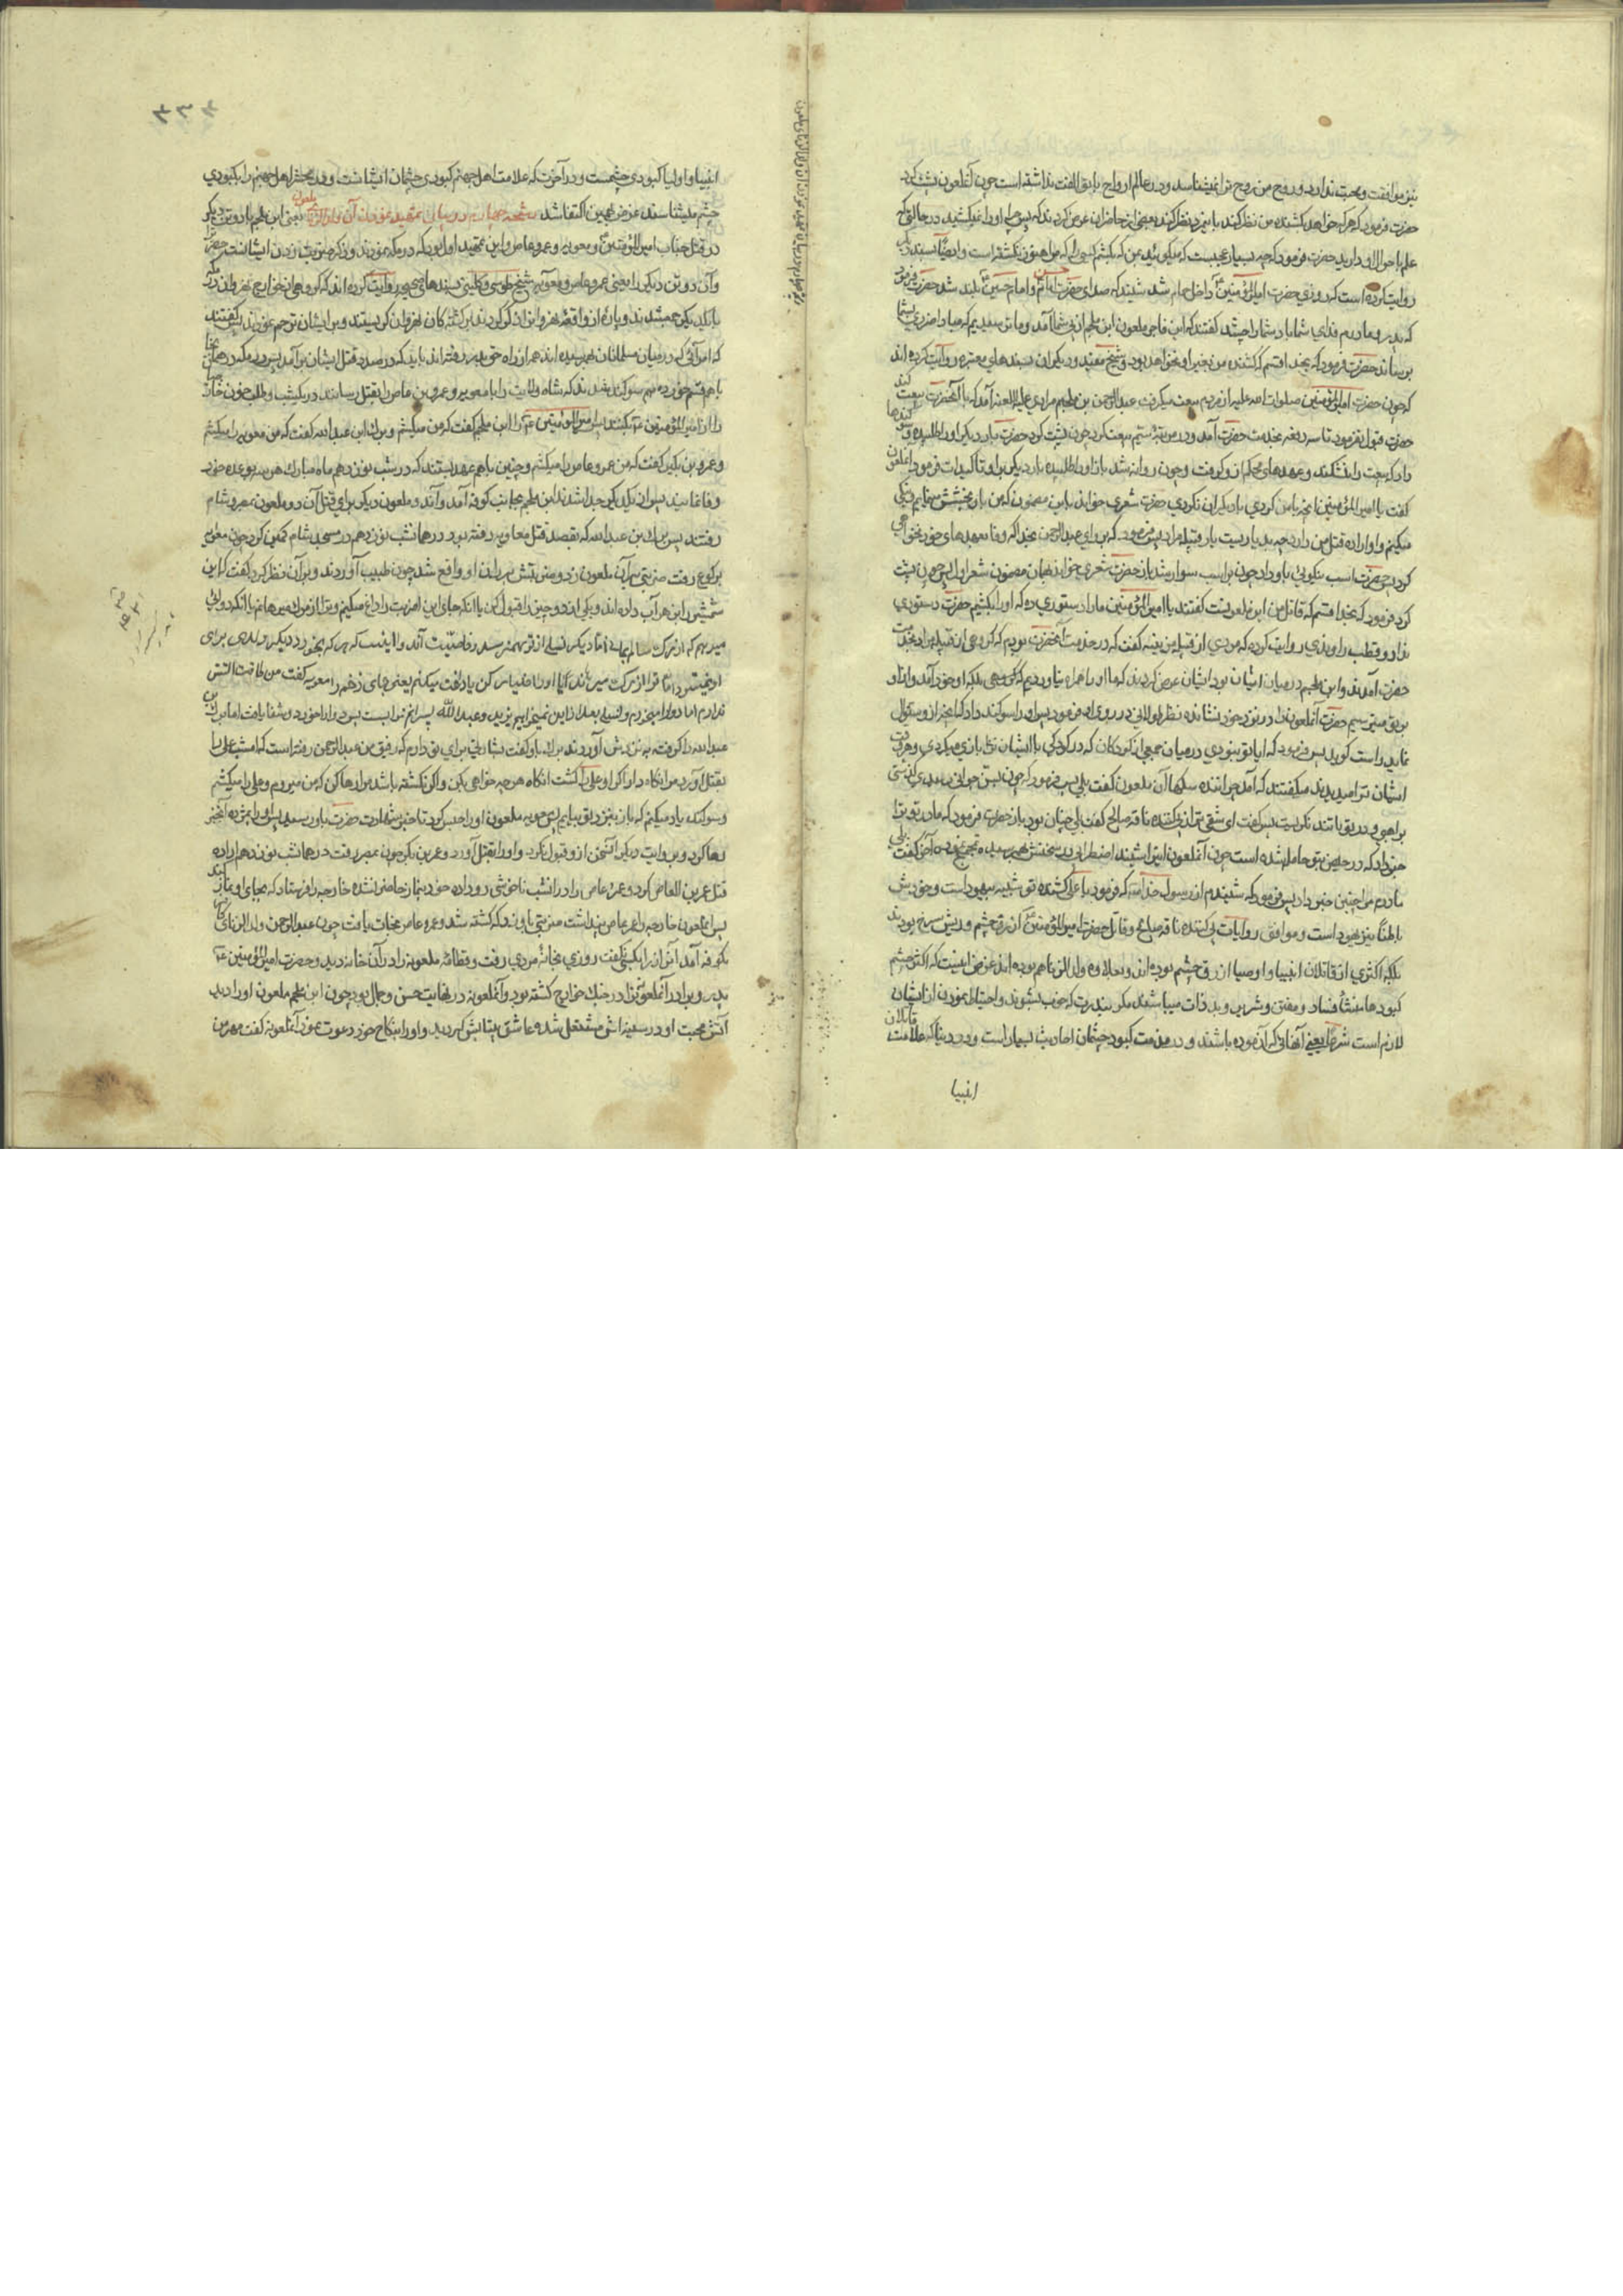 نیز موافقت و محبت ندارد و روح من روح ترا نمیشناسد و در عالم ارواح با یق الفت نداشته است چون آنملعون پشت کرد
حضرت فرمود که هر که خواهد کشنده من نظر کند باین مرد نظر کند بعضی از حاضران عرض کردند که پس چرا او را نمیکشید در حالتی که
علم باحوال او دارید حضرت فرمود که چه بسیار عجیبست که میگوئید بمن که بکشم کسی را که مرا هنوز نکشته است و ایضا بسند
روایت کرده است که روزی حضرت امیرالمؤمنین داخل حمام شد شنید که صدای حضرت امام حسن و امام حسین بلند شد حضرت فرمود
که پدر و مادرم فدای شما باد شما را چه شد گفتند که این فاجر ملعون ابن ملجم از پی شما آمد و ما ترسیدیم که مبادا ضرری بشما
برساند حضرت فرمود که بخدا قسم که کشنده من بغیر او نخواهد بود و شیخ مفید و دیگران بسندهای معتبر روایت کرده اند
که چون حضرت امیرالمؤمنین صلوات الله علیه از مردم بیعت میگرفت عبدالرحمن بن ملجم مرادی علیه اللعنه آمد که با آنحضرت بیعت کند
حضرت قبول نفرمود تا سه دفعه بخدمت حضرت آمد و در مرتبه سیم بیعت کرد چون پشت کرد حضرت بار دیگر او را طلبیده و سوگندها
داد که بیعت را نشکند و عهدهای محکم از او گرفت و چون روانه شد باز او را طلبیده بار دیگر بر او تأکیدات فرمود آنملعون
گفت یا امیرالمؤمنین آنچه با من کردی با دیگران نکردی حضرت شعری خواند باین مضمون که من باو بخشش مینمایم و نیکی
میکنم و او اراده قتل من دارد چه بد یاریست یار قبیله مراد پس فرمود که برو ای عبدالرحمن بخدا که وفا بعهدهای خود نخواهی
کرد پس حضرت اسب نیکوئی باو داد چون بر اسب سوار شد باز حضرت شعری خواند بهمان مضمون شعر اول پس چون پشت
کرد فرمود که بخدا قسم که قاتل من این ملعونست گفتند یا امیرالمؤمنین ما را دستوری ده که او را بکشیم حضرت دستوری
نداد و قطب راوندی روایت کرده که مردی از قبیله مزینه گفت که در خدمت آنحضرت بودیم که گروهی از قبیله مراد بخدمت
حضرت آمدند و ابن ملجم در میان ایشان بود ایشان عرض کردند که ما او را همراه نیاوردیم بلکه او خود آمد و ما از او
بر تو میترسیم حضرت آنملعون را در نزد خود نشانده نظر طولانی در روی او فرمود پس او را سوگند داد که آنچه از او سؤال
نماید راست گوید پس فرمود که آیا تو نبودی در میان جمعی از کودکان که در کودکی با ایشان بازی میکردی و هر وقت
ایشان ترا میدیدند میگفتند که آمد چراننده سگها آن ملعون گفت بلی پس فرمود که چون بسن جوانی رسیدی گذشتی
براهبی و در تو تند نگریست پس گفت ای شقی تر از پی کننده ناقه صالح گفت بلی چنان بود باز حضرت فرمود که مادر تو ترا
خبر داد که در حیض بتو حامله شده است چون آنملعون این را شنید اضطرابی در سخنش بهم رسید آخر گفت بلی
مادرم مرا چنین خبر داد پس فرمود که شنیدم از رسول خدا که فرمود یا علی کشنده تو شبیه بیهود است و خودش
باطناً نیز یهود است و موافق روایات پی کننده ناقه صالح و قاتل حضرت امیرالمؤمنین ازرق چشم و ریش سرخ بودند
بلکه اکثری از قاتلان انبیا و اوصیا ازرق چشم بوده اند و بعلاوه ولد الزنا هم بوده اند غرض اینست که اکثر چشم
کبودها منشأ فساد و مفتن و شریر و بد ذات میباشند مگر بندرت که خوب بشوند و احتیاط نمودن از ایشان
لازم است شرعاً یعنی آنهائی که آزموده باشند و در مذمت کبود چشمان احادیث بسیار است و در دنیا که علامت قاتلان
انبیا
٢٣٨
انبیا و اولیا کبودی چشمست و در آخرت که علامت اهل جهنم کبودی چشمان ایشانست و در محشر اهل جهنم را بکبودی
چشم میشناسند غرض بهمین اکتفا شد در بیان تمهید نمودن آن ولد الزنای ملعون یعنی ابن ملجم با دو تن دیگر
در قتل جناب امیرالمؤمنین و معویه و عمرو عاص و این تمهید اول بود که در مکه نمودند و ذکر ضربت زدن ایشانست بر حضرت
و آن دو تن دیگر را یعنی عمرو عاص و معویه شیخ طوسی و کلینی بسندهای صحیح روایت کرده اند که گروهی از خوارج نهروان در مکه
با یکدیگر جمع شدند و پاره از واقعه نهروان ذکر کردند بر کشته گان نهروان گریستند و بر ایشان ترحم نمودند پس گفتند
که امرائی که در میان مسلمانان بهم رسیده اند همه از راه حق بدر رفته اند باید که در صدد قتل ایشان برآمد پس در مکه در همان جا
با هم قسم خورده بهم سوگند شدند که شاه ولایت را با معویه و عمرو بن عاص را بقتل رسانند در یک شب و طلب خون خارجیها
را از امیرالمؤمنین بکنند امیرالمؤمنین را ابن ملجم گفت که من میکشم و برک ابن عبدالله گفت که من معویه را میکشم
و عمرو بن بکیر گفت که من عمرو عاص را میکشم و چنین با هم عهد بستند که در شب نوزدهم ماه مبارک هر سه بوعده خود
وفا نمایند پس از یکدیگر جدا شدند ابن ملجم بجانب کوفه آمد و آن دو ملعون دیگر برای قتل آن دو ملعون بمصر و شام
رفتند پس برک بن عبدالله که بقصد قتل معاویه رفته بود در همان شب نوزدهم در مسجد شام کمین کرد چون معویه
برکوع رفت ضربتی بر آن ملعون زد و ضربتش بر ران او واقع شد چون طبیب آوردند و بر آن نظر کرد گفت که این
شمشیر را بزهر آب داده اند و یکی از دو چیز را قبول کن یا آنکه جای این ضربت را داغ میکنم و ترا از مرگ میرهانم یا آنکه دوائی
میدهم که از مرگ سالم بمانی اما دیگر نسلی از تو بهم نرسد و خاصیت آن دوا اینست که هر که بخورد دیگر ولدی برای
او نمیشود اما ترا از مرگ میرهاند آیا اول اختیار کن یا دویم معویه گفت من طاقت آتش
ندارم اما دوا را میخورم و نسلی بعد از این نمیخواهم یزید و عبدالله پسرانم مرا بست پس دوا را خورد و شفا یافت اما برک بن
عبدالله را گرفته به نزدش آوردند برک باو گفت بشارتی برای تو دارم که رفیق من عبدالرحمن رفته است که امشب علی را
بقتل آورد مرا نگاه دار اگر او علی را کشت آنگاه هر چه خواهی بکن و اگر نکشته باشد مرا رها کن که من میروم و علی را میکشم
و سوگند یاد میکنم که باز بنزد تو بیایم پس معویه ملعون او را حبس کرد تا خبر شهادت حضرت باو رسید پس او را بمژده آن خبر
رها کرد و بروایت دیگر این سخن از او قبول نکرد و او را بقتل آورد و عمرو بن بکر چون بمصر رفت در همان شب نوزدهم اراده
قتل عمرو بن العاص کرد و عمرو عاص را در آنشب ناخوشی رو داده خود بنماز حاضر نشده خارجه را فرستاد که بجای او نماز کند
پس آنملعون خارجه را عمرو عاص پنداشت ضربتی باو زد که کشته شد و عمرو عاص نجات یافت چون عبدالرحمن ولد الزنا
بکوفه آمد این راز را بکسی نگفت روزی بخانه مردی رفت و قطامه ملعونه را در آن خانه دید و حضرت امیرالمؤمنین
پدر و برادر آنملعونه را در جنگ خوارج کشته بود و آنملعونه در نهایت حسن و جمال بود چون ابن ملجم ملعون او را دید
آتش محبت او در سینه اش مشتعل شده عاشق بیتابش گردید و او را بنکاح خود دعوت نمود آنملعونه گفت مهر من